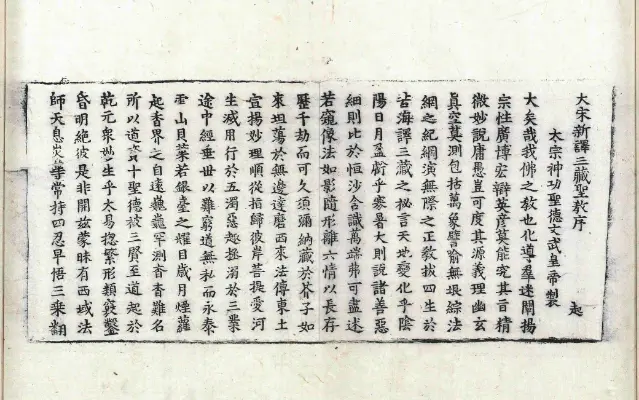 大宋新譯三藏聖教序
太宗神功聖德文武皇帝製　起
大矣哉我佛之教也化導羣迷闡揚
宗性廣博宏辯英彥莫能究其旨精
微妙說庸愚豈可度其源義理幽玄
真空莫測包括萬象譬喻無垠綜法
網之紀綱演無際之正教拔四生於
苦海譯三藏之秘言天地變化乎陰
陽日月盈虧乎寒暑大則說諸善惡
細則比於恒沙含識萬端弗可盡述
若窺像法如影隨形離六情以長存
歷千劫而可久須彌納藏於芥子如
來坦蕩於無邊達磨西來法傳東土
宣揚妙理順從指歸彼岸菩提愛河
生滅用行於五濁惡趣拯溺於三業
途中經垂世以難窮道無私而永泰
雪山貝葉若銀臺之耀日歲月煙蘿
起香界之自遠巍巍罕測杳杳難名
所以道資十聖德被三賢至道起於
乾元眾妙生乎太易揔繁形類竅鑿
昏明絕彼是非開茲蒙昧有西域法
師天息災等常持四忍早悟三乘翻